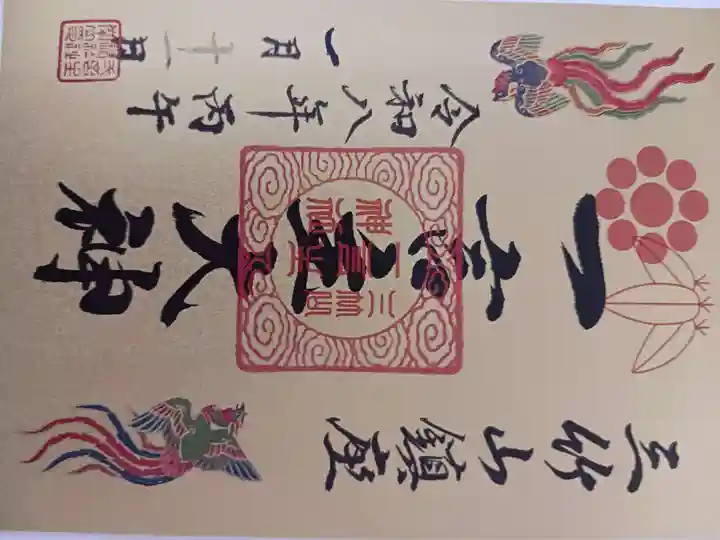 三竹山鎮座
一言主大神
令和八年丙午
一月十一日